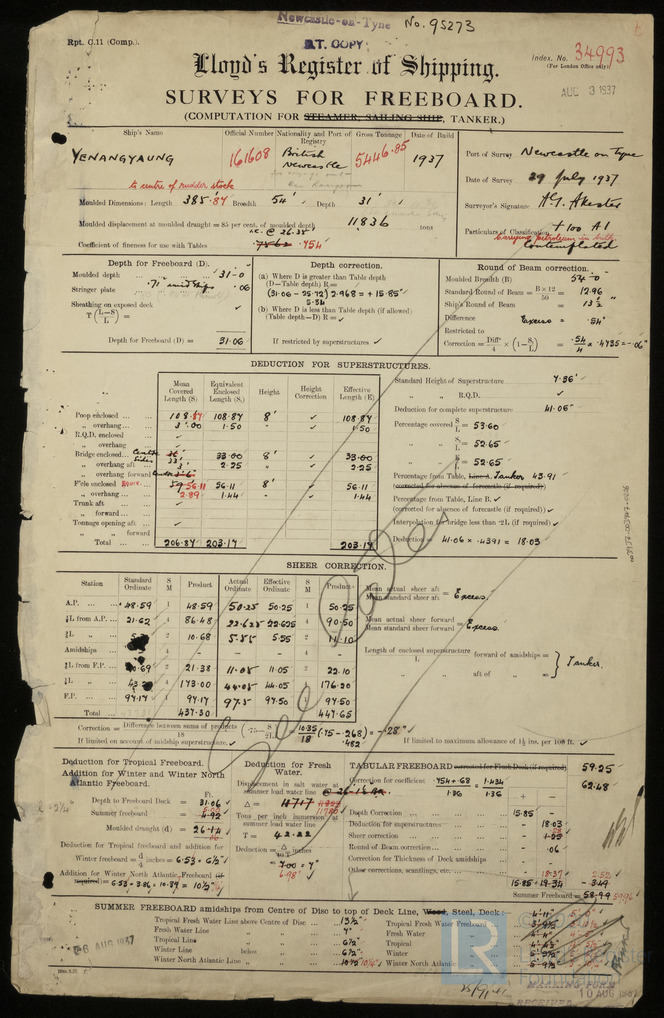 Newcastle-on-Tyne No. 95273
Rpt. C.11 (Comp.).
B.T. COPY
Index. No. 34993
(For London Office only)
Lloyd's Register of Shipping.
AUG 3 1937
SURVEYS FOR FREEBOARD.
(COMPUTATION FOR STEAMER, SAILING SHIP, TANKER.)
Ship's Name Official Number Nationality and Port of Registry Gross Tonnage Date of Build
YENANGYAUNG 161608 British Newcastle 5446.85 1937
Port of Survey Newcastle on Tyne
Date of Survey 29 July 1937
Surveyor's Signature
Particulars of Classification +100 A1
Carrying petroleum in bulk
Contemplated
to centre of rudder stock
Moulded Dimensions: Length 385.87 Breadth 54' Depth 31'
Moulded displacement at moulded draught = 85 per cent. of moulded depth 11836 tons
Coefficient of fineness for use with Tables .754
Depth for Freeboard (D).
Moulded depth 31.0
Stringer plate .71 .06
Sheathing on exposed deck
T (L-S/L) =
Depth for Freeboard (D) = 31.06
Depth correction.
(a) Where D is greater than Table depth
(D-Table depth) R=
(31.06 - 25.72) 2.968 = + 15.85"
5.34
(b) Where D is less than Table depth (if allowed)
(Table depth-D) R =
If restricted by superstructures
Round of Beam correction.
Moulded Breadth (B) 54.0
Standard Round of Beam = B×12/50 = 12.96
Ship's Round of Beam = 13½"
Difference Excess = .54"
Restricted to
Correction = Diff/4 × (1 - S/L) = .54/4 × .4735 = -.06"
DEDUCTION FOR SUPERSTRUCTURES.
Mean Covered Length (S) Equivalent Enclosed Length (S₁) Height Height Correction Effective Length (E)
Poop enclosed 108.87 108.87 8' 108.87
„ overhang 3'.00 1.50 1.50
R.Q.D. enclosed
„ overhang
Bridge enclosed 33.00 8' 33.00
„ overhang aft 3 2.25 2.25
„ overhang forward
F'cle enclosed 56.11 56.11 8' 56.11
„ overhang 2.89 1.44 1.44
Trunk aft
„ forward
Tonnage opening aft
„ „ forward
Total 206.87 203.17 203.17
Standard Height of Superstructure 7.36'
„ „ R.Q.D.
Deduction for complete superstructure 41.06"
Percentage covered S/L = 53.60
„ „ S₁/L = 52.65
„ „ E/L = 52.65
Percentage from Table, Line A. Tanker 43.91
(corrected for absence of forecastle (if required))
Percentage from Table, Line B.
(corrected for absence of forecastle (if required))
Interpolation for bridge less than ·2L (if required)
Deduction = 41.06 × .4391 = 18.03
SHEER CORRECTION.
Station Standard Ordinate S M Product Actual Ordinate Effective Ordinate S M Product
A.P. 48.59 1 48.59 50.25 50.25 1 50.25
⅙L from A.P. 21.62 4 86.48 22.625 22.625 4 90.50
⅓L „ 2 10.68 5.55 5.55 2 11.10
Amidships 4 - - - 4 -
⅓L from F.P. 2 21.38 11.05 11.05 2 22.10
⅙L „ 4 173.00 44.05 44.05 4 176.20
F.P. 97.17 1 97.17 97.5 97.50 1 97.50
Total 437.30 447.65
Mean actual sheer aft / Mean standard sheer aft = Excess
Mean actual sheer forward / Mean standard sheer forward = Excess
Length of enclosed superstructure forward of amidships =
L
„ „ aft of „ =
Tanker.
Correction = Difference between sums of products / 18 (·75 - S/2L) = 10.35/18 (.75 - .268) = -.28"
.482
If limited on account of midship superstructure. If limited to maximum allowance of 1½ ins. per 100 ft.
See Calcs
Deduction for Tropical Freeboard.
Addition for Winter and Winter North Atlantic Freeboard.
Ft.
Depth to Freeboard Deck = 31.06
Summer freeboard = 4.92
Moulded draught (d) = 26.14
Deduction for Tropical freeboard and addition for
Winter freeboard = d/4 inches = 6.53 = 6½"
Addition for Winter North Atlantic Freeboard (if required) = 6.53 + 3.86 = 10.39 = 10½"
Deduction for Fresh Water.
Displacement in salt water at summer load water line
Δ = 11717
Tons per inch immersion at summer load water line
T = 42.22
Deduction = Δ/40T inches
= 7.00 = 7"
6.98"
TABULAR FREEBOARD corrected for Flush Deck (if required) 59.25
Correction for coefficient .754+.68/1.36 = 1.434/1.36 62.48
+ -
Depth Correction 15.85
Deduction for superstructures - 18.03
Sheer correction -
Round of Beam correction - .06
Correction for Thickness of Deck amidships -
Other corrections, scantlings, etc. -
15.85 - 3.49
Summer Freeboard = 58.99
SUMMER FREEBOARD amidships from Centre of Disc to top of Deck Line, Wood, Steel, Deck:
Tropical Fresh Water Line above Centre of Disc 13½"
Fresh Water Line „ „ 7"
Tropical Line „ „ 6½"
Winter Line below „ 6½"
Winter North Atlantic Line „ „
Tropical Fresh Water Freeboard
Fresh Water „
Tropical „
Winter „
Winter North Atlantic „
6 AUG 1937
MARKING FORM
RECEIVED
10 AUG 1937
LR